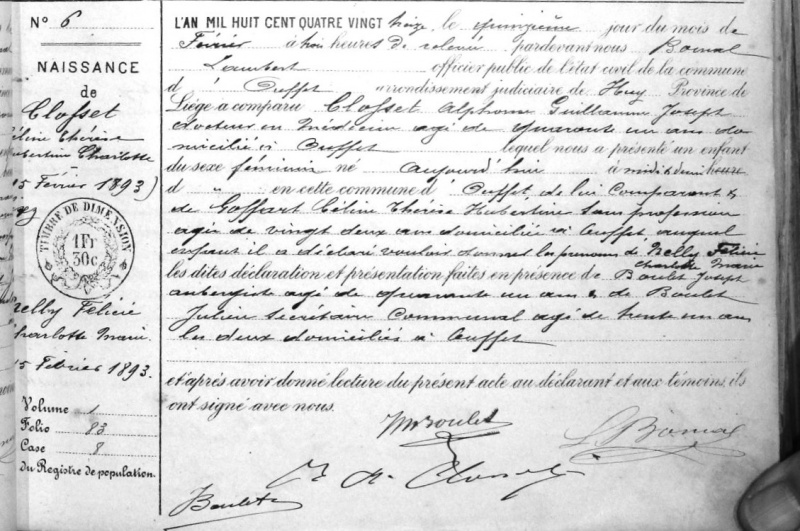 N° 6
NAISSANCE
de
Closset
Céline Thérèse
Hubertine Charlotte
15 Février 1893)
TIMBRE DE DIMENSION
1 Fr
30c
Nelly Félicie
Charlotte Marie
15 Février 1893.
Volume 1
Folio 83
Case 8
du Registre de population.
L'AN MIL HUIT CENT QUATRE VINGT treize, le quinzième jour du mois de
Février à trois heures de relevée pardevant nous Bomal
Lambert officier public de l'état civil de la commune
d' Ouffet arrondissement judiciaire de Huy Province de
Liége a comparu Closset Alphonse Guillaume Joseph
docteur en Médecine agé de quarante un ans do-
micilié à Ouffet lequel nous a présenté un enfant
du sexe féminin né aujourd'hui à midi & demi heure
d " en cette commune d' Ouffet, de lui Comparant &
de Goffart Céline Thérèse Hubertine sans profession
agée de vingt deux ans domiciliée à Ouffet auquel
enfant il a déclaré vouloir donner les prénoms de Nelly Félicie
Charlotte Marie
les dites déclaration et présentation faites en présence de Boulet Joseph
aubergiste agé de quarante un ans & de Boulet
Julien Secrétaire Communal agé de trente un ans
les deux domiciliés à Ouffet
et après avoir donné lecture du présent acte au déclarant et aux témoins, ils
ont signé avec nous.
Boulet
L. Bomal
A. Closset
Boulet